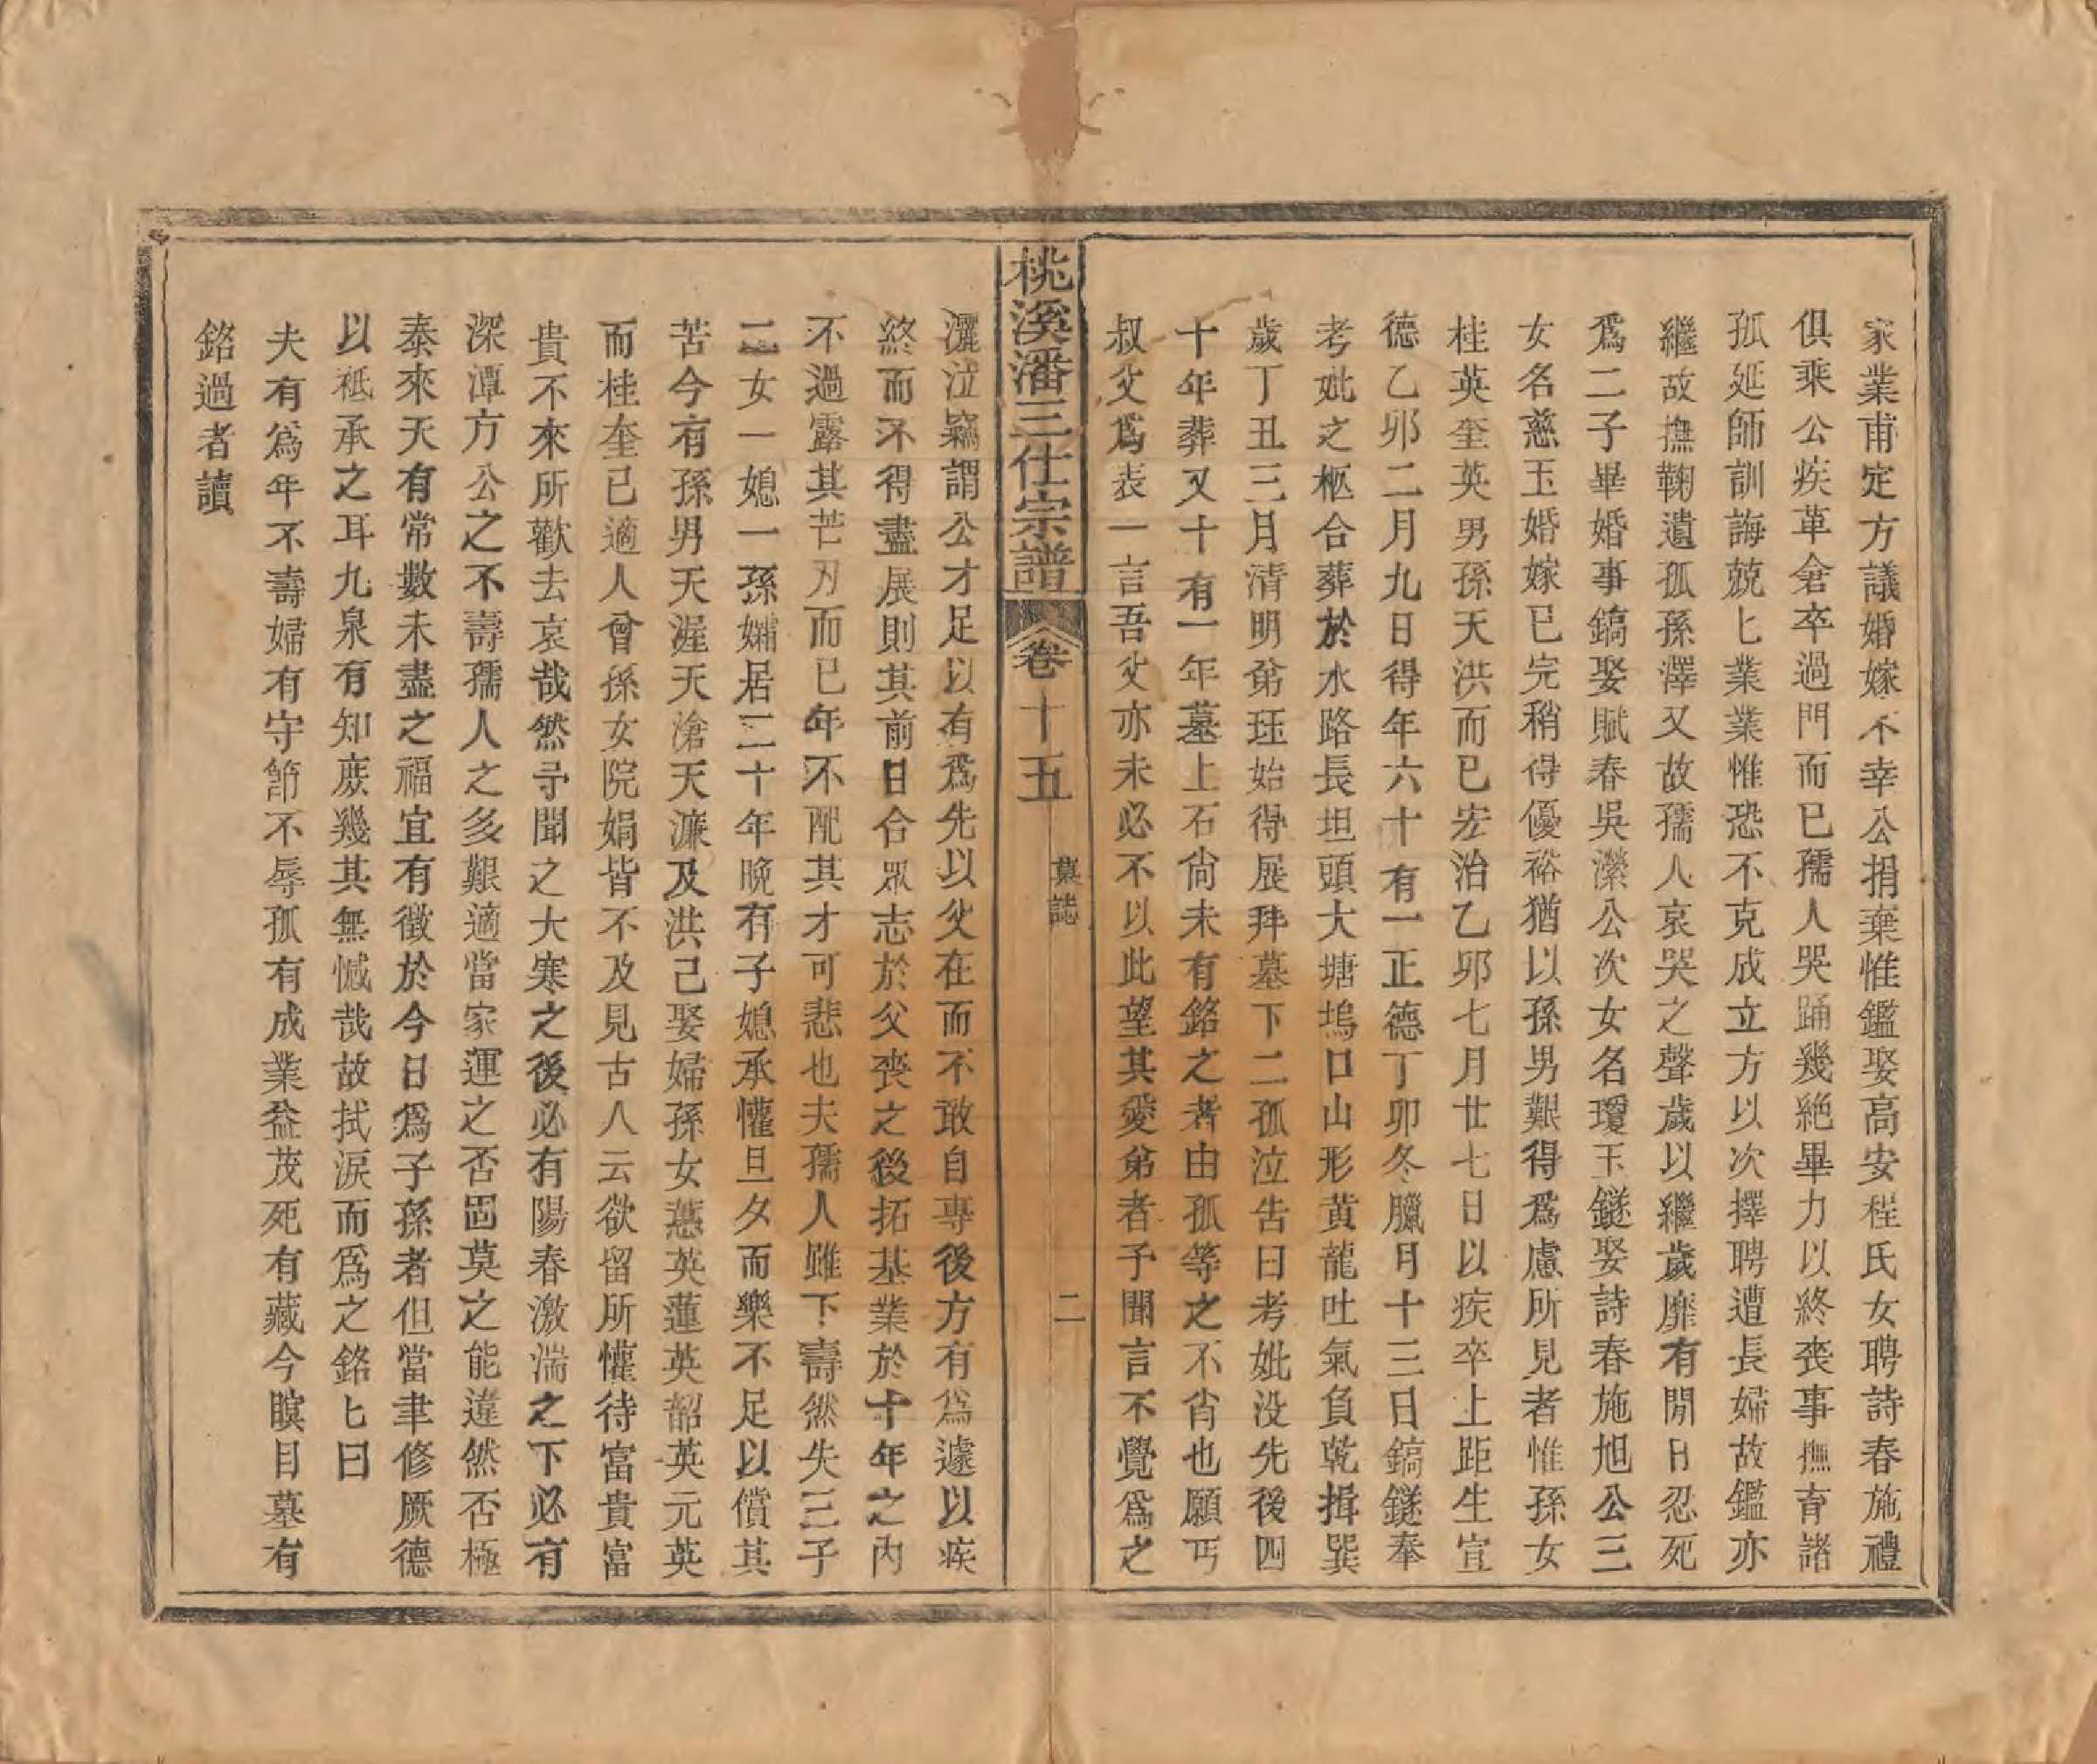 家業甫定方議婚嫁不幸公捐棄惟鑑娶高安程氏女聘詩春施禮
俱乘公疾革倉卒過門而已孺人哭踊幾絕畢力以終喪事撫育諸
孤延師訓誨兢匕業業惟恐不克成立方以次擇聘遭長婦故鑑亦
繼故撫鞠遺孤孫澤又故孺人哀哭之聲歲以繼歲靡有閒日忍死
爲二子畢婚事鎬娶賦春吳濴公次女名瓊玉鐩娶詩春施旭公三
女名慈玉婚嫁已完稍得優裕猶以孫男艱得爲慮所見者惟孫女
桂英奎英男孫天洪而已宏治乙卯七月廿七日以疾卒上距生宣
德乙卯二月九日得年六十有一正德丁卯冬臘月十三日鎬鐩奉
考妣之柩合葬於水路長坦頭大塘塢口山形黄龍吐氣負乾揖巽
歲丁丑三月清明弟珏始得展拜墓下二孤泣告曰考妣没先後四
十年葬又十有一年墓上石尙未有銘之者由孤等之不肖也願丐
叔父爲表一言吾父亦未必不以此望其愛弟者予聞言不覺爲之
桃溪潘三仕宗譜 卷十五 墓誌 二
灑泣竊謂公才足以有爲先以父在而不敢自專後方有爲遽以疾
終而不得盡展則其前日合眾志於父喪之後拓基業於十年之內
不過露其芒刃而已年不配其才可悲也夫孺人雖下壽然失三子
二女一媳一孫孀居二十年晚有子媳承懽旦夕而樂不足以償其
苦今有孫男天渥天滄天濂及洪己娶婦孫女蕙英蓮英韶英元英
而桂奎已適人曾孫女院娟皆不及見古人云欲留所懽待富貴富
貴不來所歡去哀哉然予聞之大寒之後必有陽春激湍之下必有
深潭方公之不壽孺人之多艱適當家運之否固莫之能違然否極
泰來天有常數未盡之福宜有徵於今日爲子孫者但當聿修厥德
以祗承之耳九泉有知庶幾其無憾哉故拭淚而爲之銘匕曰
夫有爲年不壽婦有守節不辱孤有成業益茂死有藏今瞑目墓有
銘過者讀